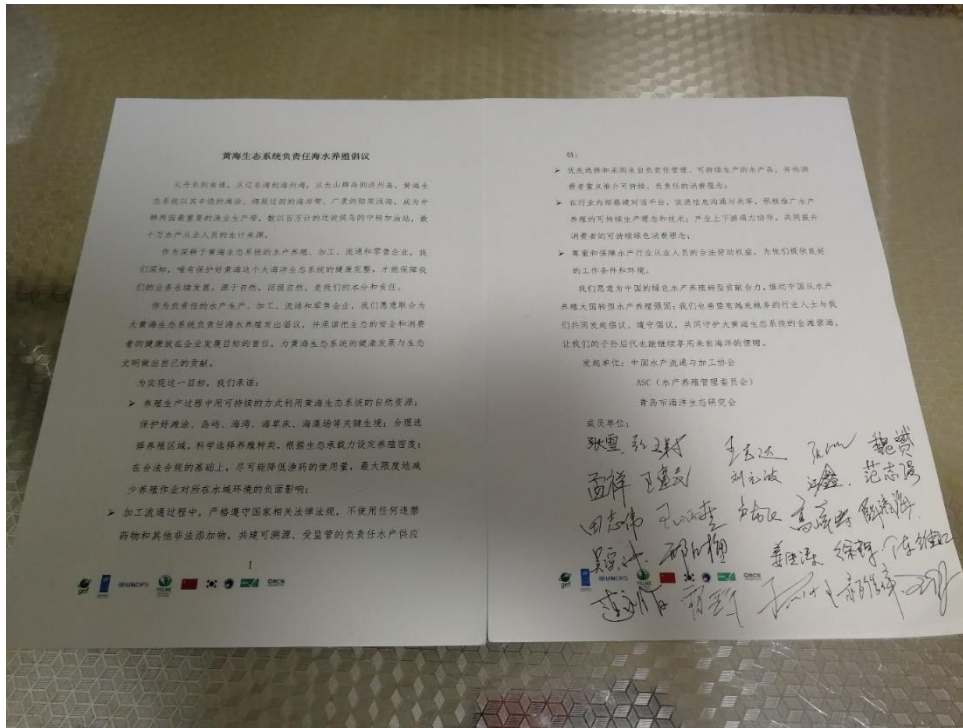 黄海生态系统负责任海水养殖倡议
从丹东到南通，从辽东湾到海州湾，从长山群岛到济州岛，黄海生
态系统以其丰饶的滩涂、绵延迂回的海岸带、广袤的陆架浅海，成为中
韩两国最重要的渔业生产带，数以百万计的迁徙候鸟的中转加油站，数
十万水产从业人员的生计来源。
作为深耕于黄海生态系统的水产养殖、加工、流通和零售企业，我
们深知，唯有保护好黄海这个大海洋生态系统的健康完整，才能保障我
们的业务永续发展。源于自然，回报自然，是我们的本分和责任。
作为负责任的水产生产、加工、流通和零售企业，我们愿意联合为
大黄海生态系统负责任海水养殖发出倡议，并承诺把生态的安全和消费
者的健康放在企业发展目标的首位，为黄海生态系统的健康发展与生态
文明做出自己的贡献。
为实现这一目标，我们承诺：
➢ 养殖生产过程中用可持续的方式利用黄海生态系统的自然资源；
保护好滩涂、岛屿、海湾、海草床、海藻场等关键生境；合理选
择养殖区域，科学选择养殖种类，根据生态承载力设定养殖密度；
在合法合规的基础上，尽可能降低渔药的使用量，最大限度地减
少养殖作业对所在水域环境的负面影响；
➢ 加工流通过程中，严格遵守国家相关法律法规，不使用任何违禁
药物和其他非法添加物，共建可溯源、受监管的负责任水产供应
1
gef
UNOPS
链；
➢ 优先选择和采购来自负责任管理、可持续生产的水产品，并向消
费者重点推介可持续、负责任的消费理念；
➢ 在行业内部搭建对话平台，促进信息沟通与共享，积极推广水产
养殖的可持续生产理念和技术；产业上下游通力协作，共同提升
消费者的可持续绿色消费理念；
➢ 尊重和保障水产行业从业人员的合法劳动权益，为他们提供良好
的工作条件和环境。
我们愿意为中国的绿色水产养殖转型贡献合力，推动中国从水产
养殖大国转型水产养殖强国；我们也希望有越来越多的行业人士与我
们共同发起倡议、遵守倡议，共同守护大黄海生态系统的金滩碧海，
让我们的子孙后代也能继续享用来自海洋的馈赠。
发起单位：中国水产流通与加工协会
ASC（水产养殖管理委员会）
青岛市海洋生态研究会
成员单位：
孟祥
田志伟
范志强
gef
UNOPS